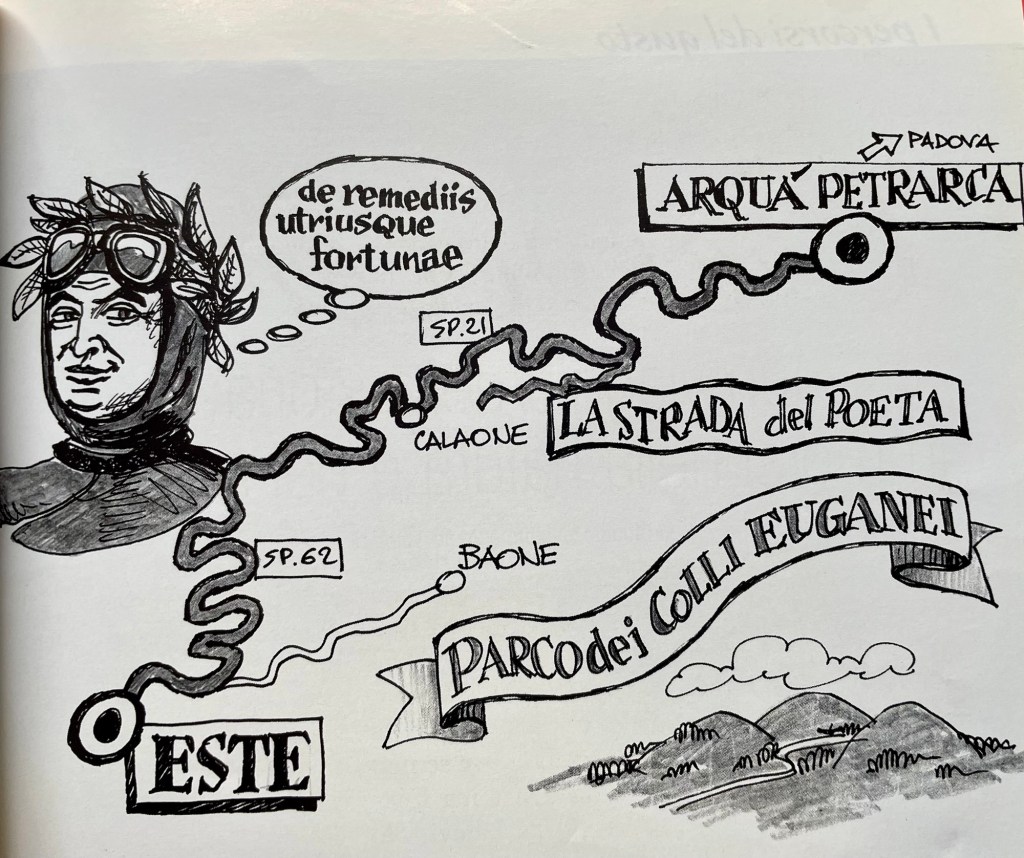 I percorsi del gusto
PADOVA
ARQUÁ PETRARCA
de remediis
utriusque
fortunae
SP.21
CALAONE
LA STRADA del POETA
PARCO dei COLLI EUGANEI
SP.62
BAONE
ESTE